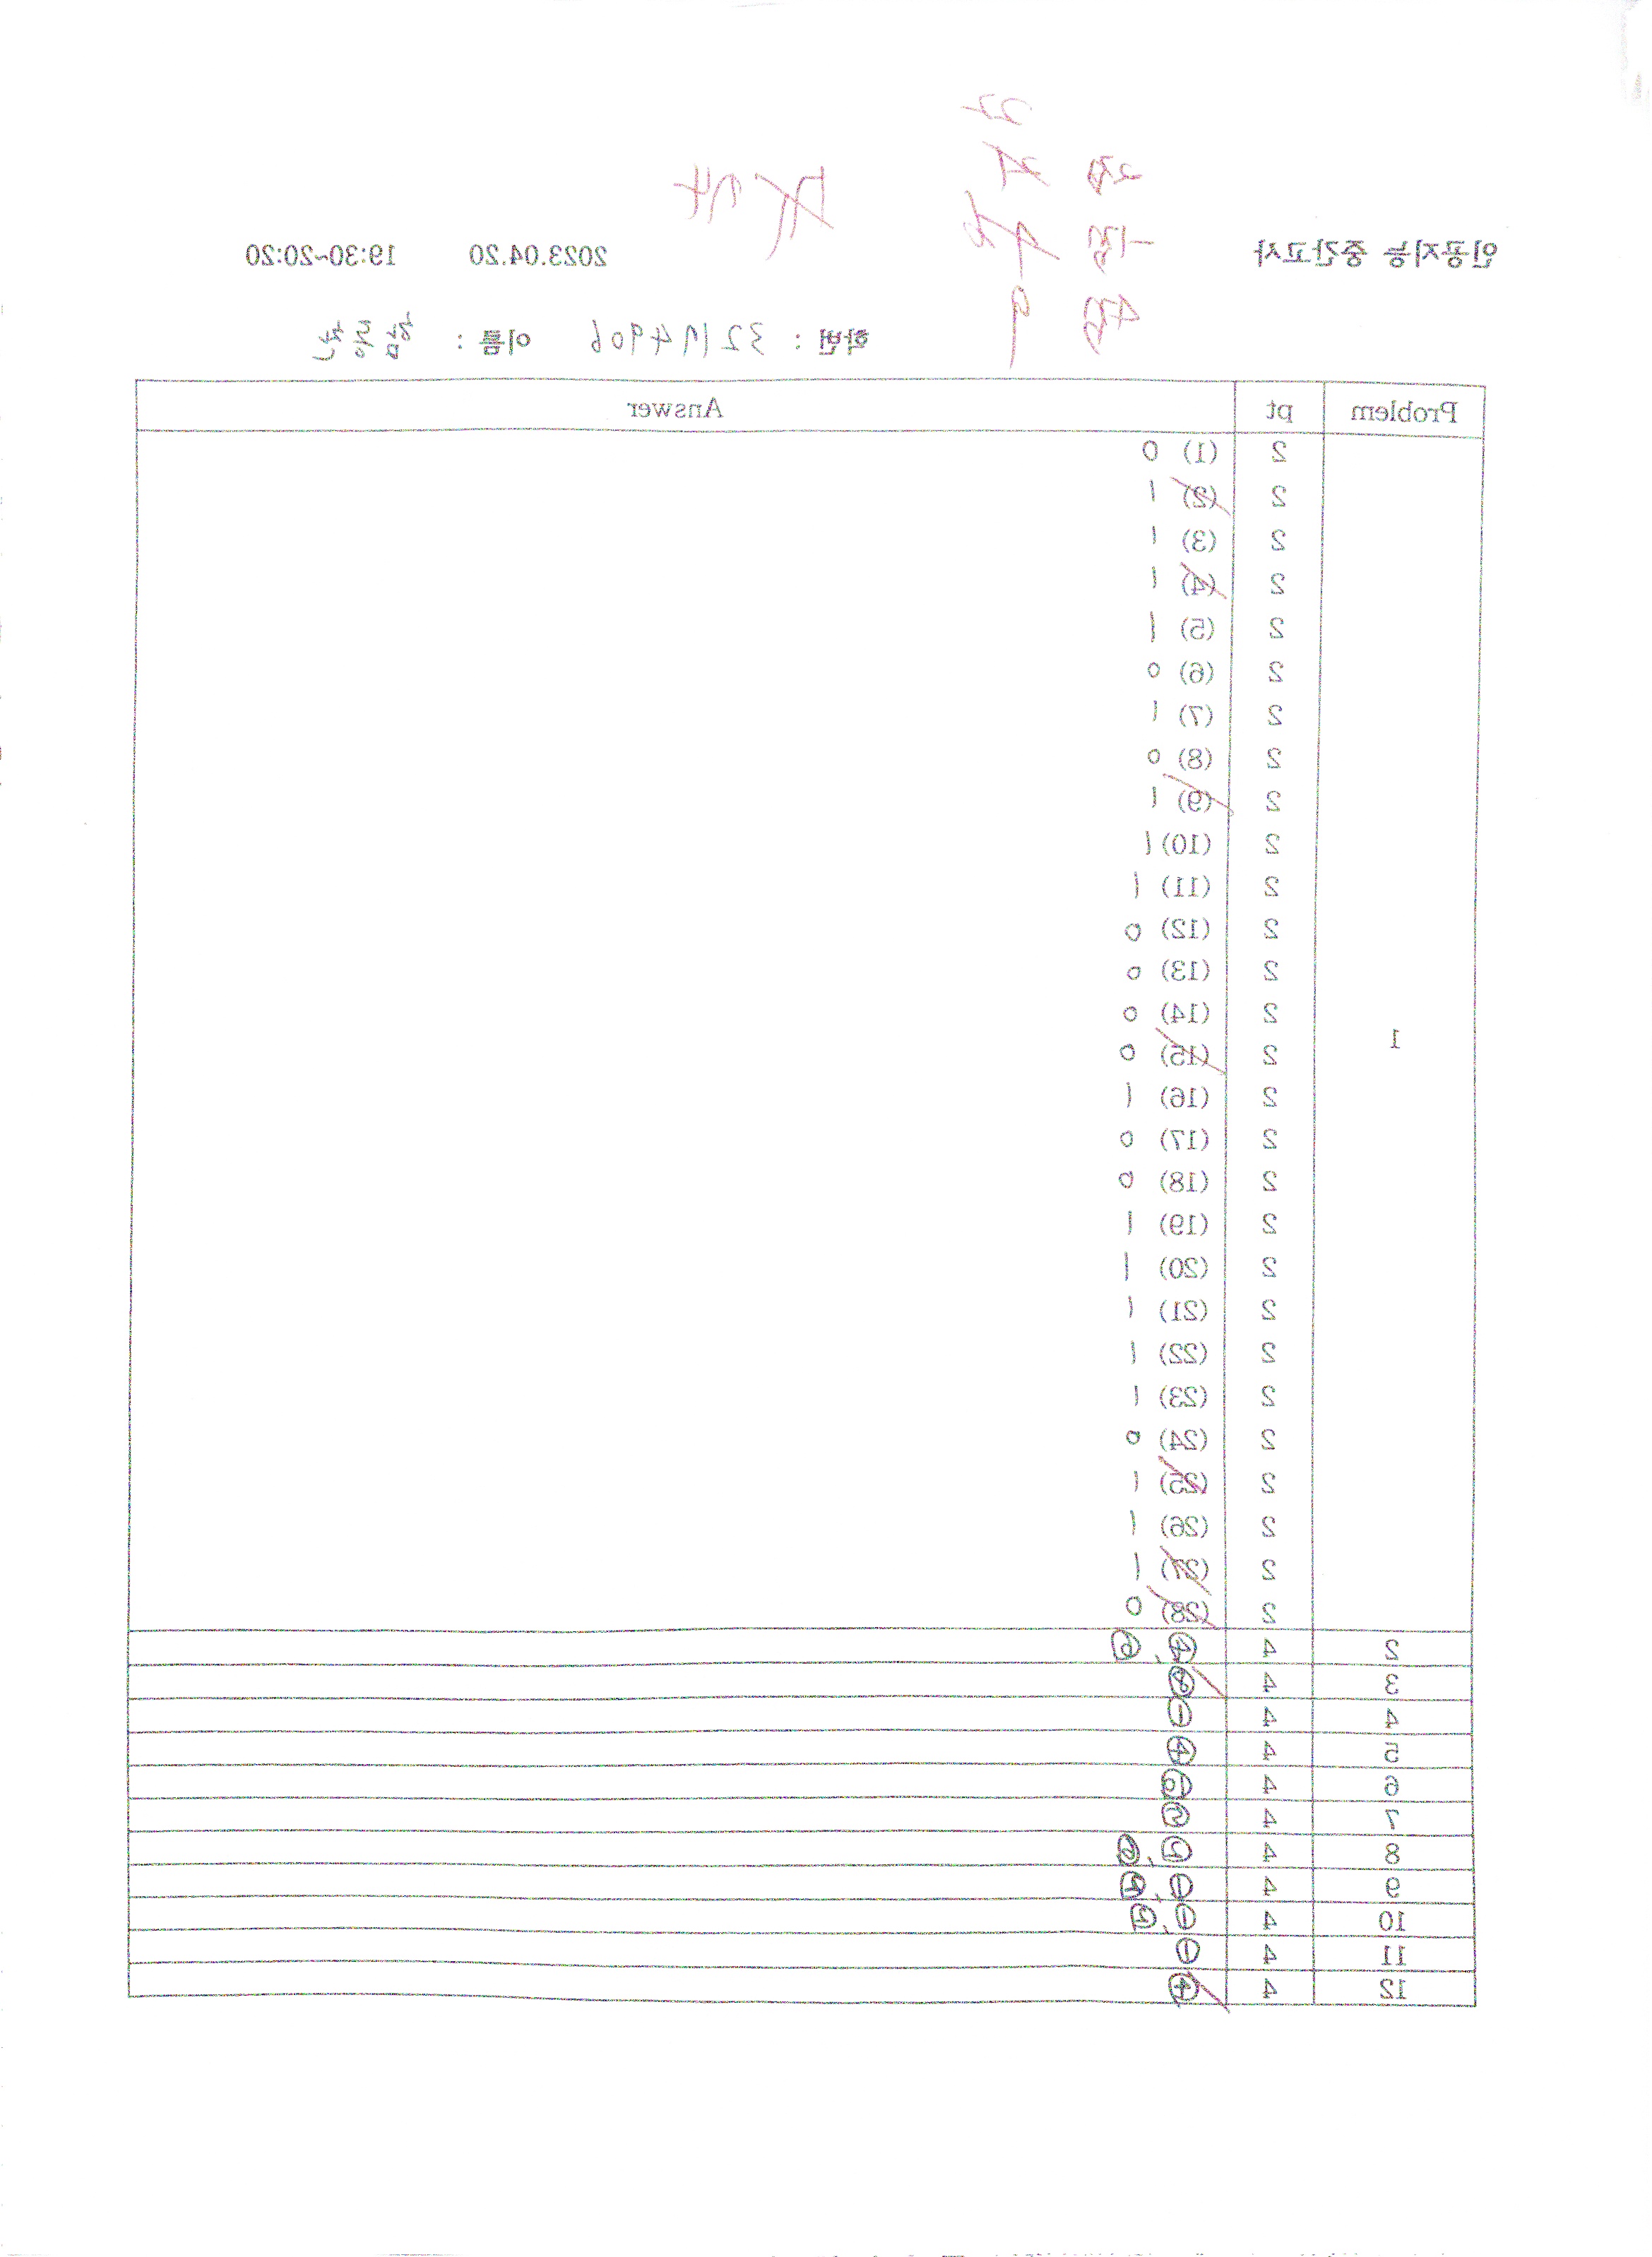 2점
-1점
4점
인공지능 중간고사 2023.04.20 19:30~20:20
학번 : 32174906 이름 :
Problem pt Answer
1
2 (1) 0
2 (2) 1
2 (3) 1
2 (4) 1
2 (5) 1
2 (6) 0
2 (7) 1
2 (8) 0
2 (9) 1
2 (10) 1
2 (11) 1
2 (12) 0
2 (13) 0
2 (14) 0
2 (15) 0
2 (16) 1
2 (17) 0
2 (18) 0
2 (19) 1
2 (20) 1
2 (21) 1
2 (22) 1
2 (23) 1
2 (24) 0
2 (25) 1
2 (26) 1
2 (27) 1
2 (28) 0
2 4 ④,
3 4 ⑧
4 4 ①
5 4 ④
6 4
7 4
8 4
9 4 ①,
10 4 ①,
11 4 ①
12 4 ④